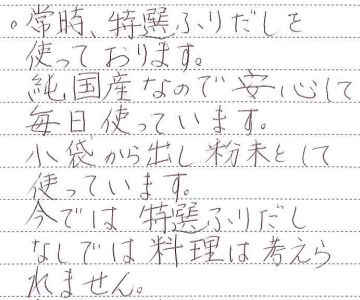 。常時、特選ふりだしを
使っております。
純国産なので安心して
毎日使っています。
小袋から出し粉末として
使っています。
今では特選ふりだし
なしでは料理は考えら
れません。